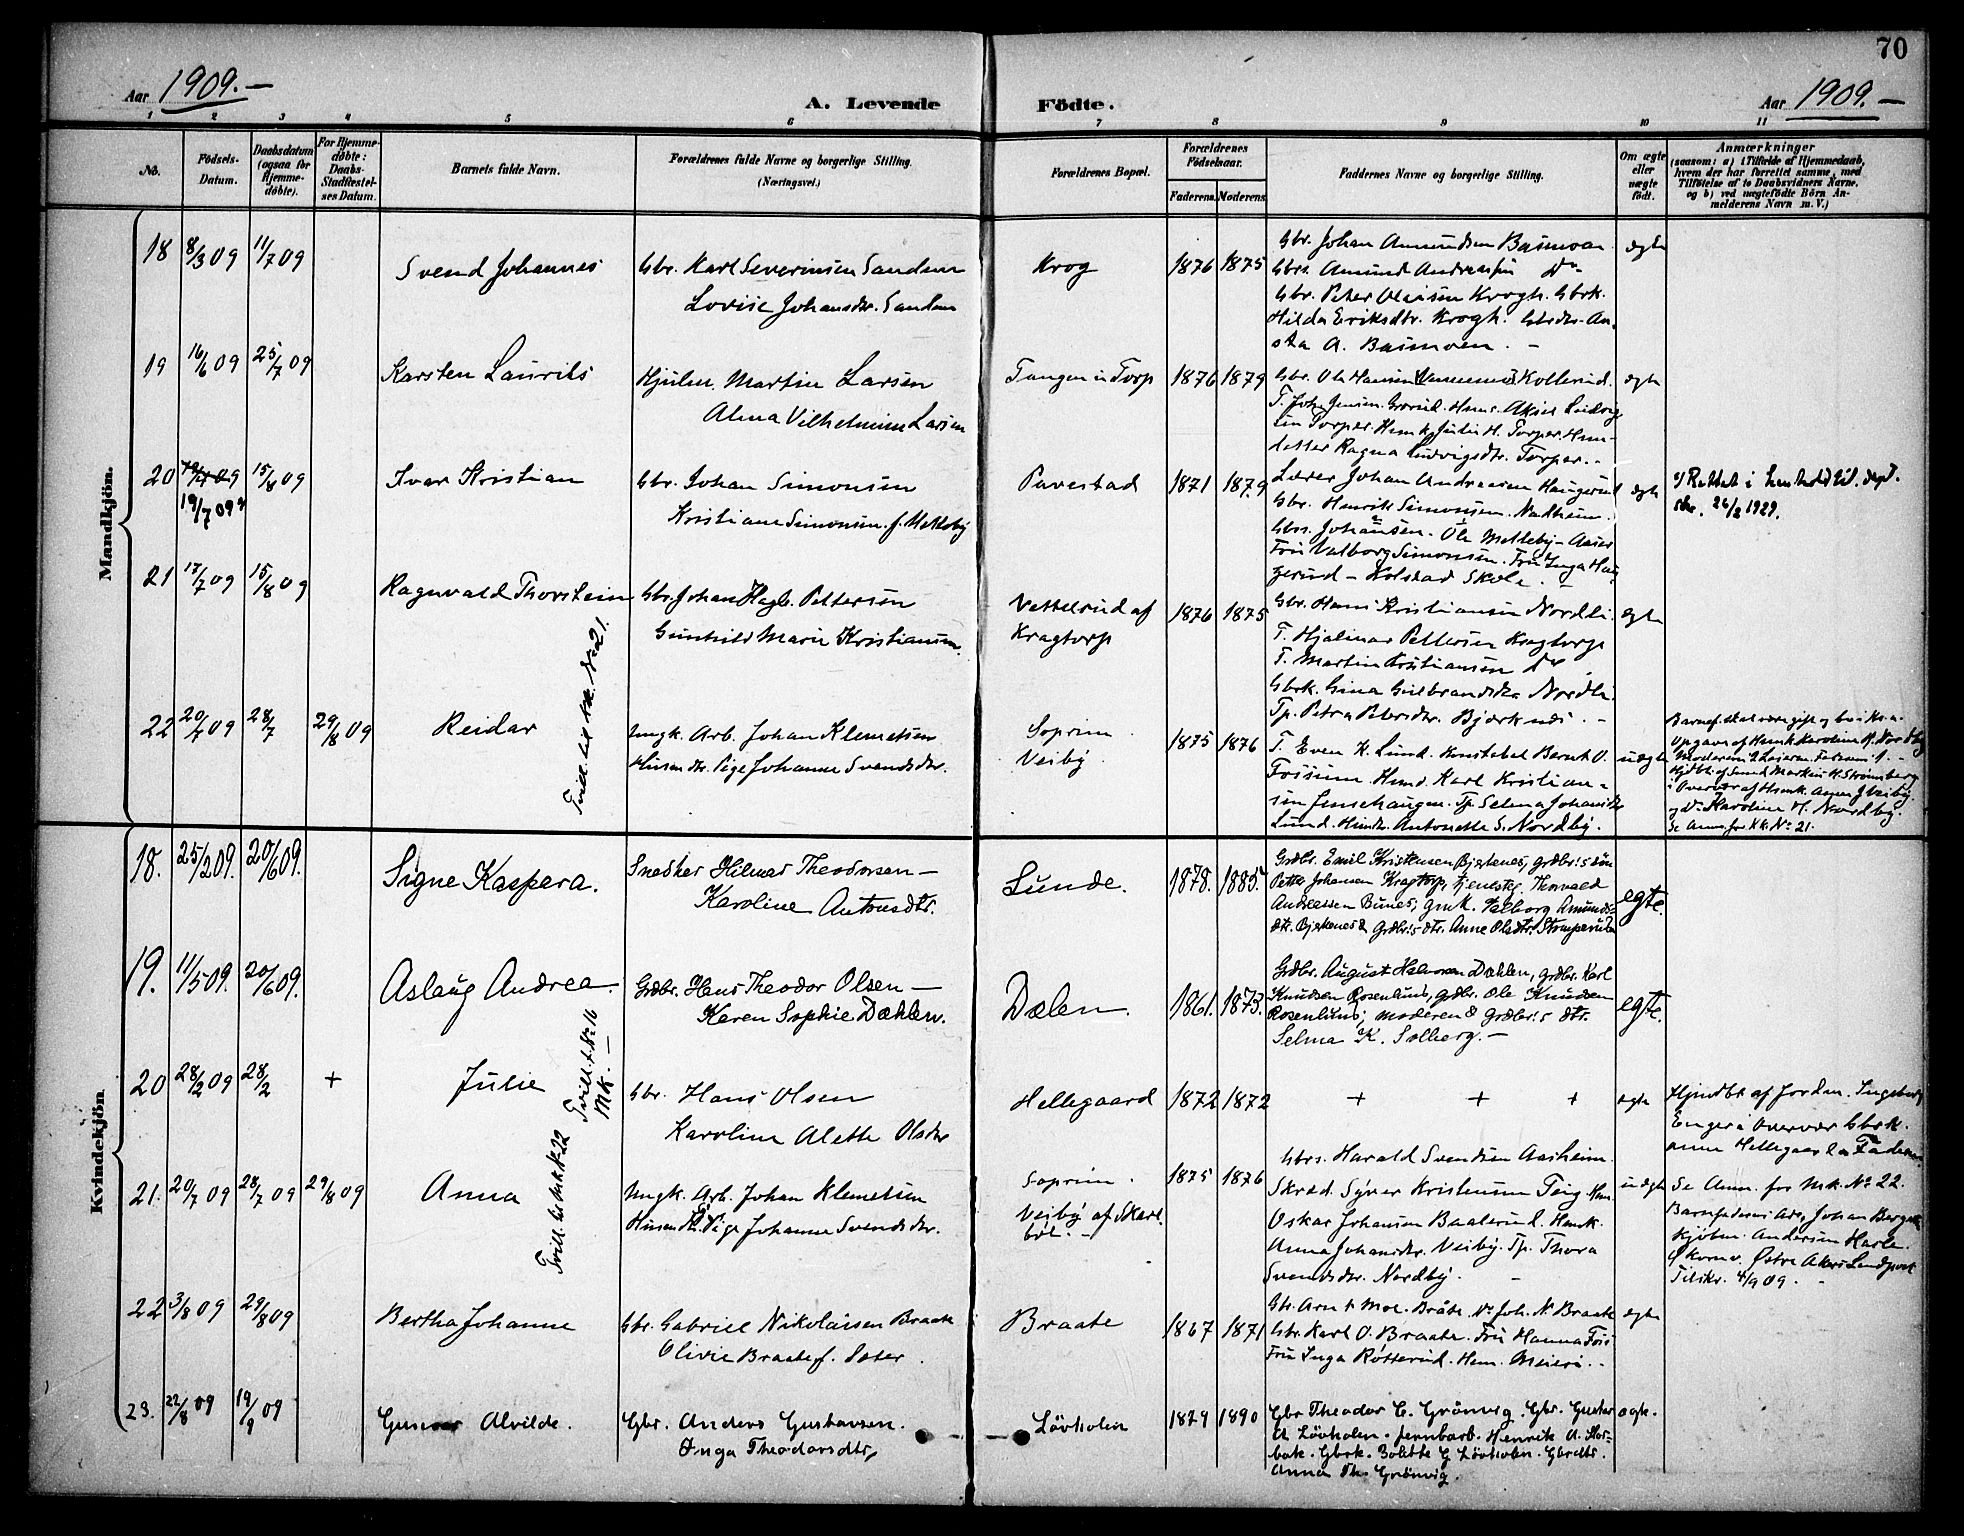 70
Aar 1909.—
A. Levende Födte.
Aar 1909.—
1 2 3 4 5 6 7 8 9 10 11
No.
Födsels-
Datum.
Daabsdatum
(ogsaa for
Hjemme-
döbte).
For Hjemme-
döbte:
Daabs-
Stadfæstel-
ses Datum.
Barnets fulde Navn.
Forældrenes fulde Navne og borgerlige Stilling.
(Næringsvei.)
Forældrenes Bopæl.
Forældrenes
Födselsaar.
Faderens. Moderens.
Faddernes Navne og borgerlige Stilling.
Om ægte
eller
uægte
født.
Anmærkninger
(saasom: a) i Tilfælde af Hjemmedaab,
hvem der har forrettet samme, med
Tilföielse af to Daabsvidners Navne,
og b) ved uægtefödte Börn An-
melderens Navn m. V.)
Mandkjön.
18 8/3 09 11/7 09
Svend Johannes
Gbr. Karl Severinsen Sandum
Lovise Johansdtr. Sandum
Krog
1876 1875
Gbr. Johan Amundsen Basmoen
Gbrs. Amund Andreassen Do
Gbr. Peter Olaisen Krogh. Gbrk.
Hilda Eriksdtr. Krogh. Gbrdtr. An-
sta A. Basmoen. —
ægte
19 16/6 09 25/7 09
Karsten Laurits
Hjulm. Martin Larsen
Alma Vilhelmine Larsen
Tangen u Torp
1876 1879
Gbr. Ole Hansen Kollerud.
Ragna Ludvigsdtr. Torper. -
ægte
20 19/4 09 15/8 09
19/7 09
Ivar Kristian
Gbr. Johan Simonsen
Kristiane Simonsen f. Melleby
Pavestad
1871 1879
Lærer Johan Andreassen Haugerud
Gbr. Henrik Simonsen. Nadheim.
Gbrs. Johansen. Ole Melleby - Aaser
Fru Valborg Simonsen. Fru Inga Hau-
gerud - Holstad Skole. -
ægte
Rettet i henhold til dept.
skr. 26/2 1929.
21 17/7 09 15/8 09
Ragnvald Thorstein
Gbr. Johan Hagb. Pettersen
Gunhild Marie Kristiansen
Vettelrud af
Kragtorp
1876 1875
Gbr. Hans Kristiansen Nordli
T. Hjalmar Pettersen Kragtorp
T. Martin Kristiansen Do
Gbrk. Gina Gulbrandsdtr Nordli
Tp. Petra Petersdtr. Bjerknes. -
ægte
22 20/7 09 28/7 29/8 09
Reidar
Tvill. til Kk. No 21.
Ungk. Arb. Johan Klemetsen
Pige Johanne Svendsdtr.
Soprim
Veiby
1875 1876
T. Even K. Lund. Konstabel Bernt O.
Fossum. Hmd. Karl Kristian-
sen Jensehaugen. Tp. Selma Johansdtr
Lund. Hmdtr. Antonette S. Nordby.
uægte
Barnef. skal være gift og bo i Kr.a.
Opgave af Hmk. Karoline H. Nordby
Hjdbt. af Smed Markus H. Strömsberg
i Overvær af Hsmk. Veiby
og Do Karoline H. Nordby.
Se Anm. for Kk. No 21.
Kvindekjön
18. 25/2 09. 20/6 09.
Signe Kaspera.
Snedker Hilmar Theodorsen —
Karoline Antonsdtr.
Lunde.
1878. 1885.
Grdbr. Emil Kristensen Bjerkenes, grdbr's sön
Petter Johansen Kragtorp, tjenesteg. Thorvald
Andreassen Bunes, gmk. Valborg Amunds-
dtr. Bjerkenes & Grdbr's dtr. Anne Olsdtr. Stomperud
egte.
19. 11/5 09. 20/6 09.
Aslaug Andrea.
Grdbr. Hans Theodor Olsen —
Karen Sophie Dæhlen.
Dælen.
1861. 1873.
Grdbr. August Halvorsen Dæhlen, grdbr. Karl
Knudsen Rosenlund, grdbr. Ole Knudsen
Rosenlund, moderen & grdbr's dtr.
Selma K. Solberg. —
egte.
20 28/2 09 28/2 +
Julie
Tvill. t. No 16
Mk. —
Gbr. Hans Olsen
Karoline Alette Olsdtr
Hellegaard
1872 1872
+ + +
ægte
Hjmdbt af Jordm. Ingeborg
Enger i Overvær Gbrk.
Anne Hellegaard & Faderen
21. 20/7 09 28/7 09 29/8 09
Anna
Tvill. til Mk. No 22
Ungk. Arb. Johan Klemetsen
Pige Johanne Svendsdtr.
Soprim.
Veiby af Skarl
böl. -
1875 1876
Gbrs. Harald Svendsen Aasheim.
Skræd. Syver Kristensen Teig Hm.
Oskar Johansen Baalerud. Hmk.
Anna Johansdtr. Veiby. Tp. Thora
Svendsdtr. Nordby. —
uægte
Se Anm. for Mk. No 22.
Barnfaderens Adr. Johan Berger
Kjöbm. Andersen Hasle.
Ökernv. Østre Aker
Tilskr. 4/9 09. -
22 3/8 09 29/8 09
Bertha Johanne
Gbr. Gabriel Nikolaisen Braate
Olivie Braate f. Soter.
Braate
1867 1871
Joh. N. Braate
Gbr. Karl O. Braate. Fru Hanna Foss
Fru Inga Røtterud. Hem. Meieri. -
ægte
23. 22/8 09 19/9 09
Alvilde.
Gbr. Anders Gustavsen.
Inga Theodorsdtr,
Lövholen
1879 1890
Gbr Theodor C. Grönvig. Gbr. Gustav
A Lövholen. Jernbarb. Henrik A. Stor-
bak. Gbrk. Bolette G Lövholen. Gbrdtr.
Anna Th. Grönvig.
ægt.